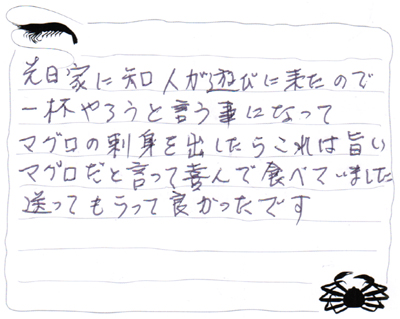 先日家に知人が遊びに来たので
一杯やろうと言う事になって
マグロの刺身を出したらこれは旨い
マグロだと言って喜んで食べていました
送ってもらって良かったです